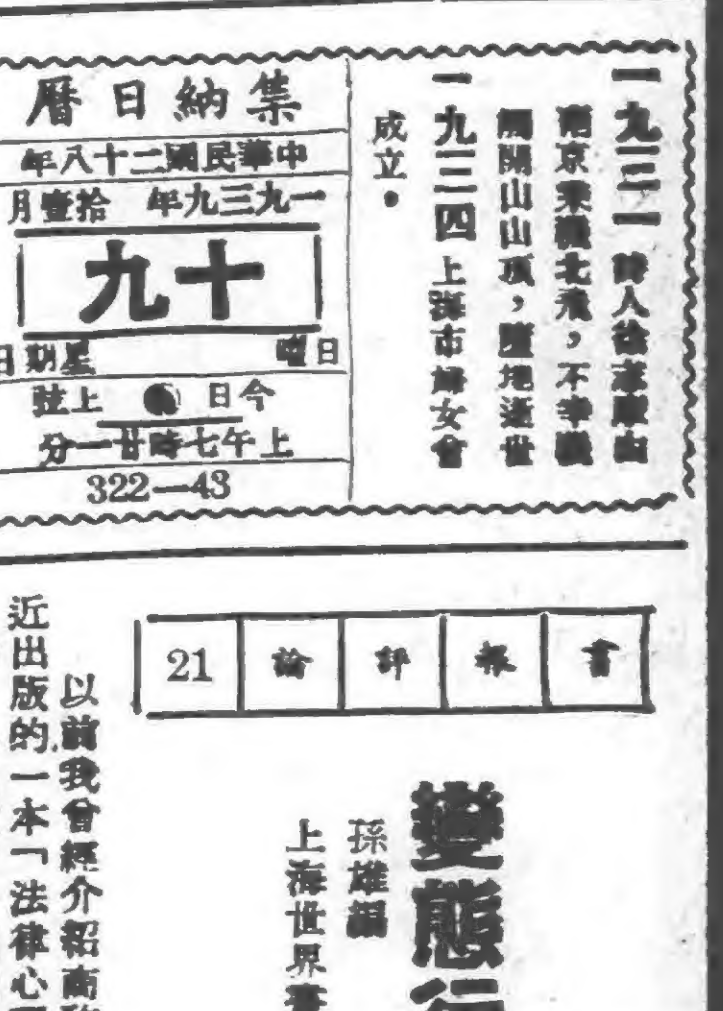 一九三一 詩人徐志摩由
南京乘機北飛，不幸機
觸開山山頂，墮地逝世
一九三四 上海市婦女會
成立。
集納日曆
中華民國二十八年
一九三九年 拾壹月
十九
日曜 星期日
今日 上弦
上午七時廿一分
322—43
書報評論 21
變態行
孫雄編
上海世界書
以前我曾經介紹商務
近出版的一本「法律心